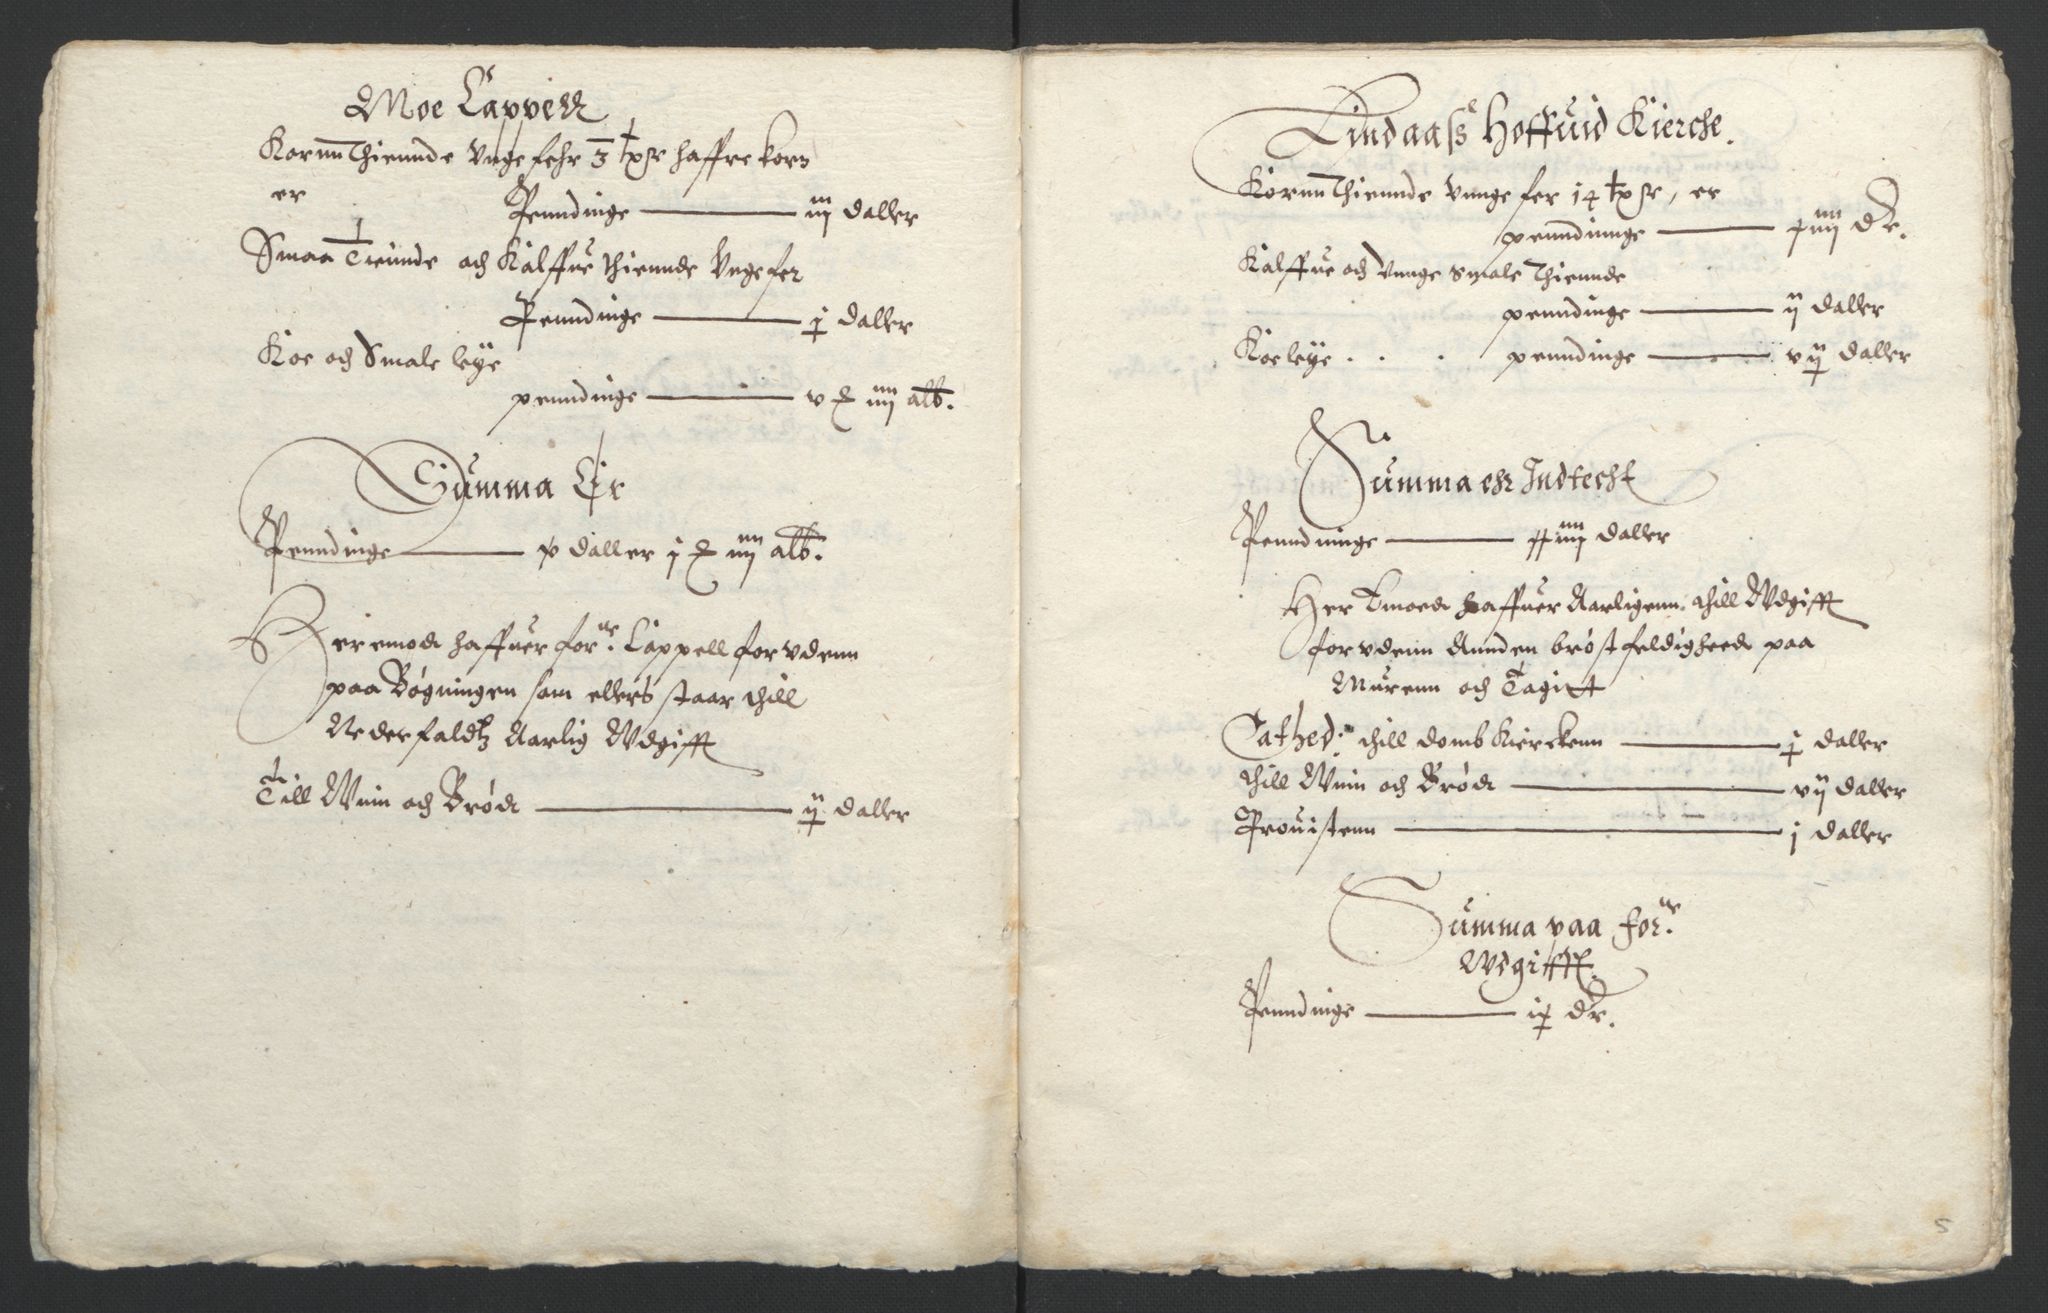 Moe Cappell
Kornn Thiennde Vnge fehr 3 tønr haffre korn
er
Penndinge — iiij daller
Smaa Tieinde och Kalffue thiennde Vngefer
Penndinge — j daller
Koe och Smale leye
penndinge — v ℔ iiij alb.
Summa Er
Penndinge — x daller j ℔ iiij alb.
Heremodt haffuer forne. Cappell forvdenn
paa Bøgningen som ellers staar thill
Nederfaldtz Aarlig Wdgifft
Till Wiin och Brødt — ij daller
Lindaass Hoffuid Kierche.
Kornn Thiennde Vnngefer 14 tønr, er
penndinnge — xiiij dr.
Kalffue och Vnnge smale Thiennde
penndinge — ij daller
Koeleye . . . penndinge — vij daller
Summa ehr Indtecht
Penndninge — xxiiij daller
Her Emodt haffuer Aarligenn thill Wdgifft
forvdenn Annden brøstfeldigheedt paa
Murenn och Tagitt
Cathed: thill dombkierckenn — j daller
thill Wiin och Brødt — vij daller
Prouistenn — j daller
Summa paa forne.
Wdgifft.
Penndinge — ix dr.
5